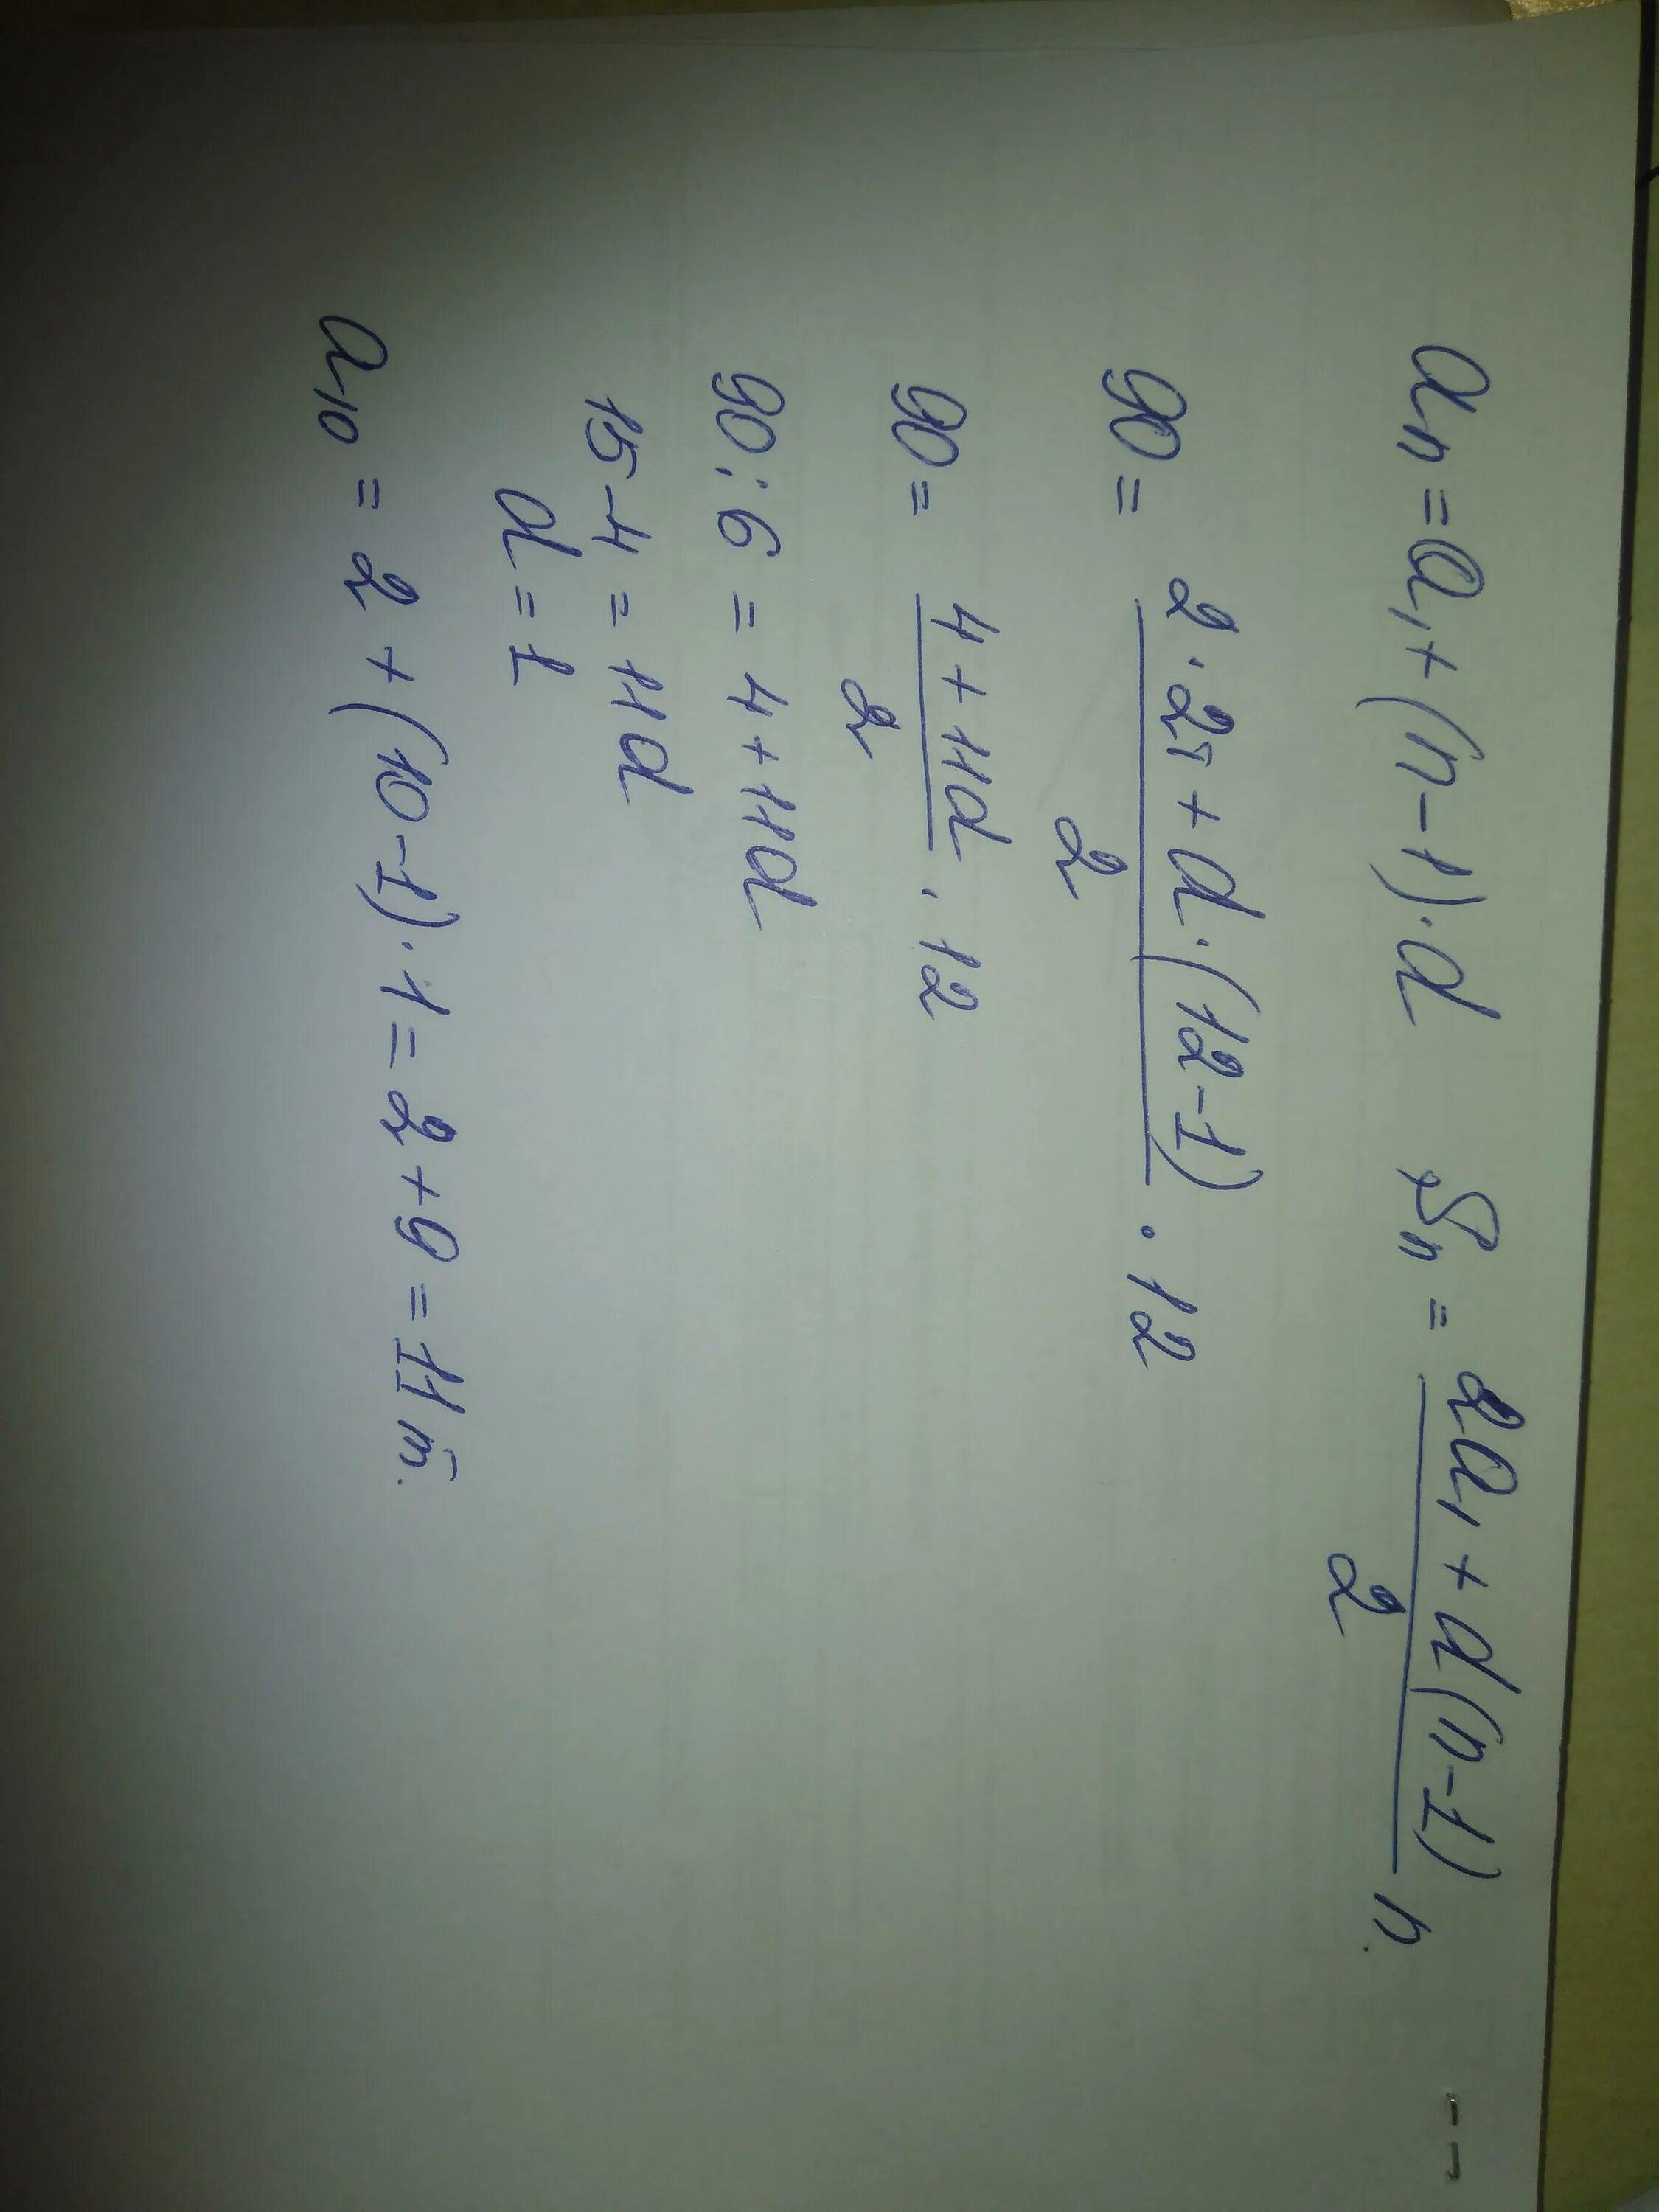 aₙ = a₁ + (n-1)·d Sₙ = (2a₁ + d(n-1))/2 n
90 = (2·2т + d·(12-1))/2 · 12
90 = (4 + 11d)/2 · 12
90 : 6 = 4 + 11d
15 - 4 = 11d
d = 1
a₁₀ = 2 + (10-1)·1 = 2 + 9 = 11 т.